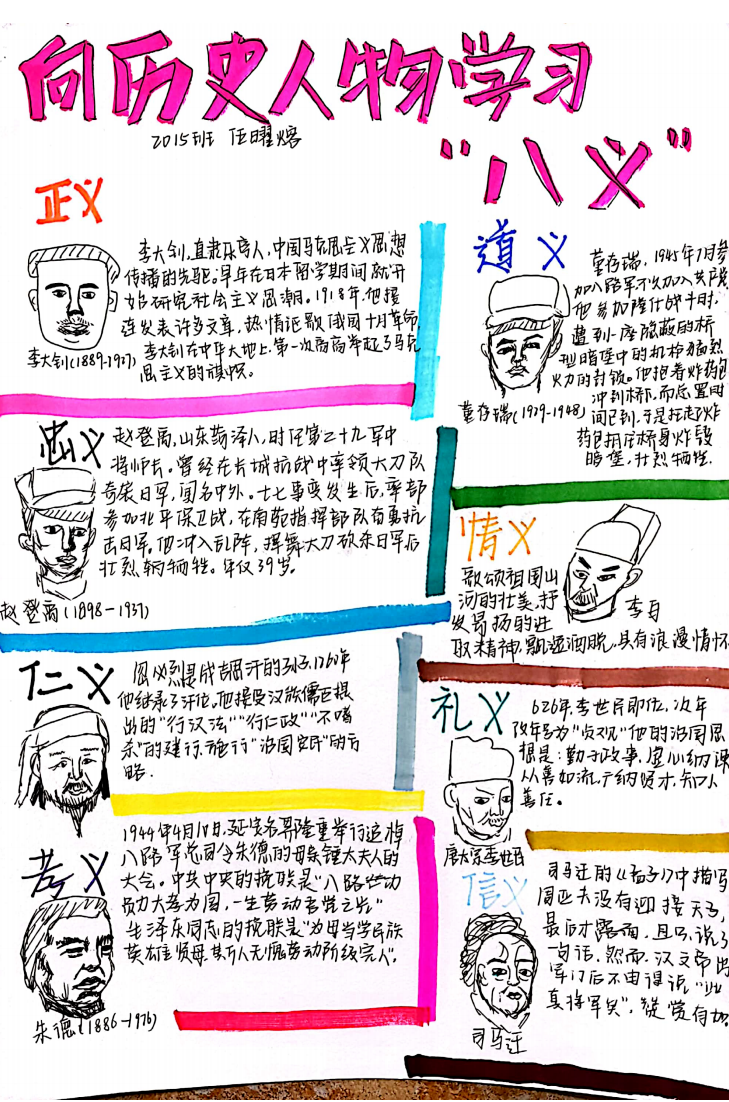 向历史人物学习
2015班 伍曜熔
"八义"
正义
李大钊,直隶乐亭人,中国马克思主义思想
传播的先驱。早年在日本留学期间就开
始研究社会主义思潮。1918年,他接
连发表许多文章,热情讴歌俄国十月革命
李大钊在中华大地上,第一次高高举起了马克
思主义的旗帜。
李大钊(1889-1927)
忠义
赵登禹,山东菏泽人,时任第二十九军中
将师长,曾经在长城抗战中率领大刀队
奇袭日军,闻名中外。七七事变发生后,率部
参加北平保卫战,在南苑指挥部队奋勇抗
击日军。他冲入乱阵,挥舞大刀砍杀日军后
壮烈牺牲。年仅39岁。
赵登禹(1898-1937)
仁义
忽必烈是成吉思汗的孙子,1260年
他继承了汗位。他接受汉族儒臣提
出的"行汉法""行仁政""不嗜
杀"的建行,施行"治国安民"的方
略.
孝义
1944年4月10日,延安各界隆重举行追悼
八路军总司令朱德的母亲钟太夫人的
大会。中共中央的挽联是"八路
大孝为国,一生劳动
毛泽东同志的挽联是"为母当学民族
英雄贤母,斯人无愧劳动阶级完人"。
朱德(1886-1976)
道义
董存瑞,1945年7月参
加八路军不久加入共产党
他参加隆化战斗时,
遭到一座隐蔽的桥
型暗堡中的机枪猛烈
火力的封锁。他抱着炸药包
冲到桥,而总置时
间已到,于是托起炸
药包抵住桥身炸毁
暗堡,壮烈牺牲.
董存瑞(1929-1948)
情义
歌颂祖国山
河的壮美,抒
发昂扬的进
取精神,飘逸洒脱,具有浪漫情怀
李白
礼义
626年,李世民即位,次年
改年号为"贞观"他的治国思
想是:勤于政事,虚心纳谏
从善如流,广纳贤才,知人
善任。
唐太宗李世民
信义
司马迁的《孟子》中描写
周亚夫没有迎接天子,
最后才露面,且只说了
一句话,然而,汉文帝出
军门后不由得说,"此
真将军矣",赞赏有加.
司马迁